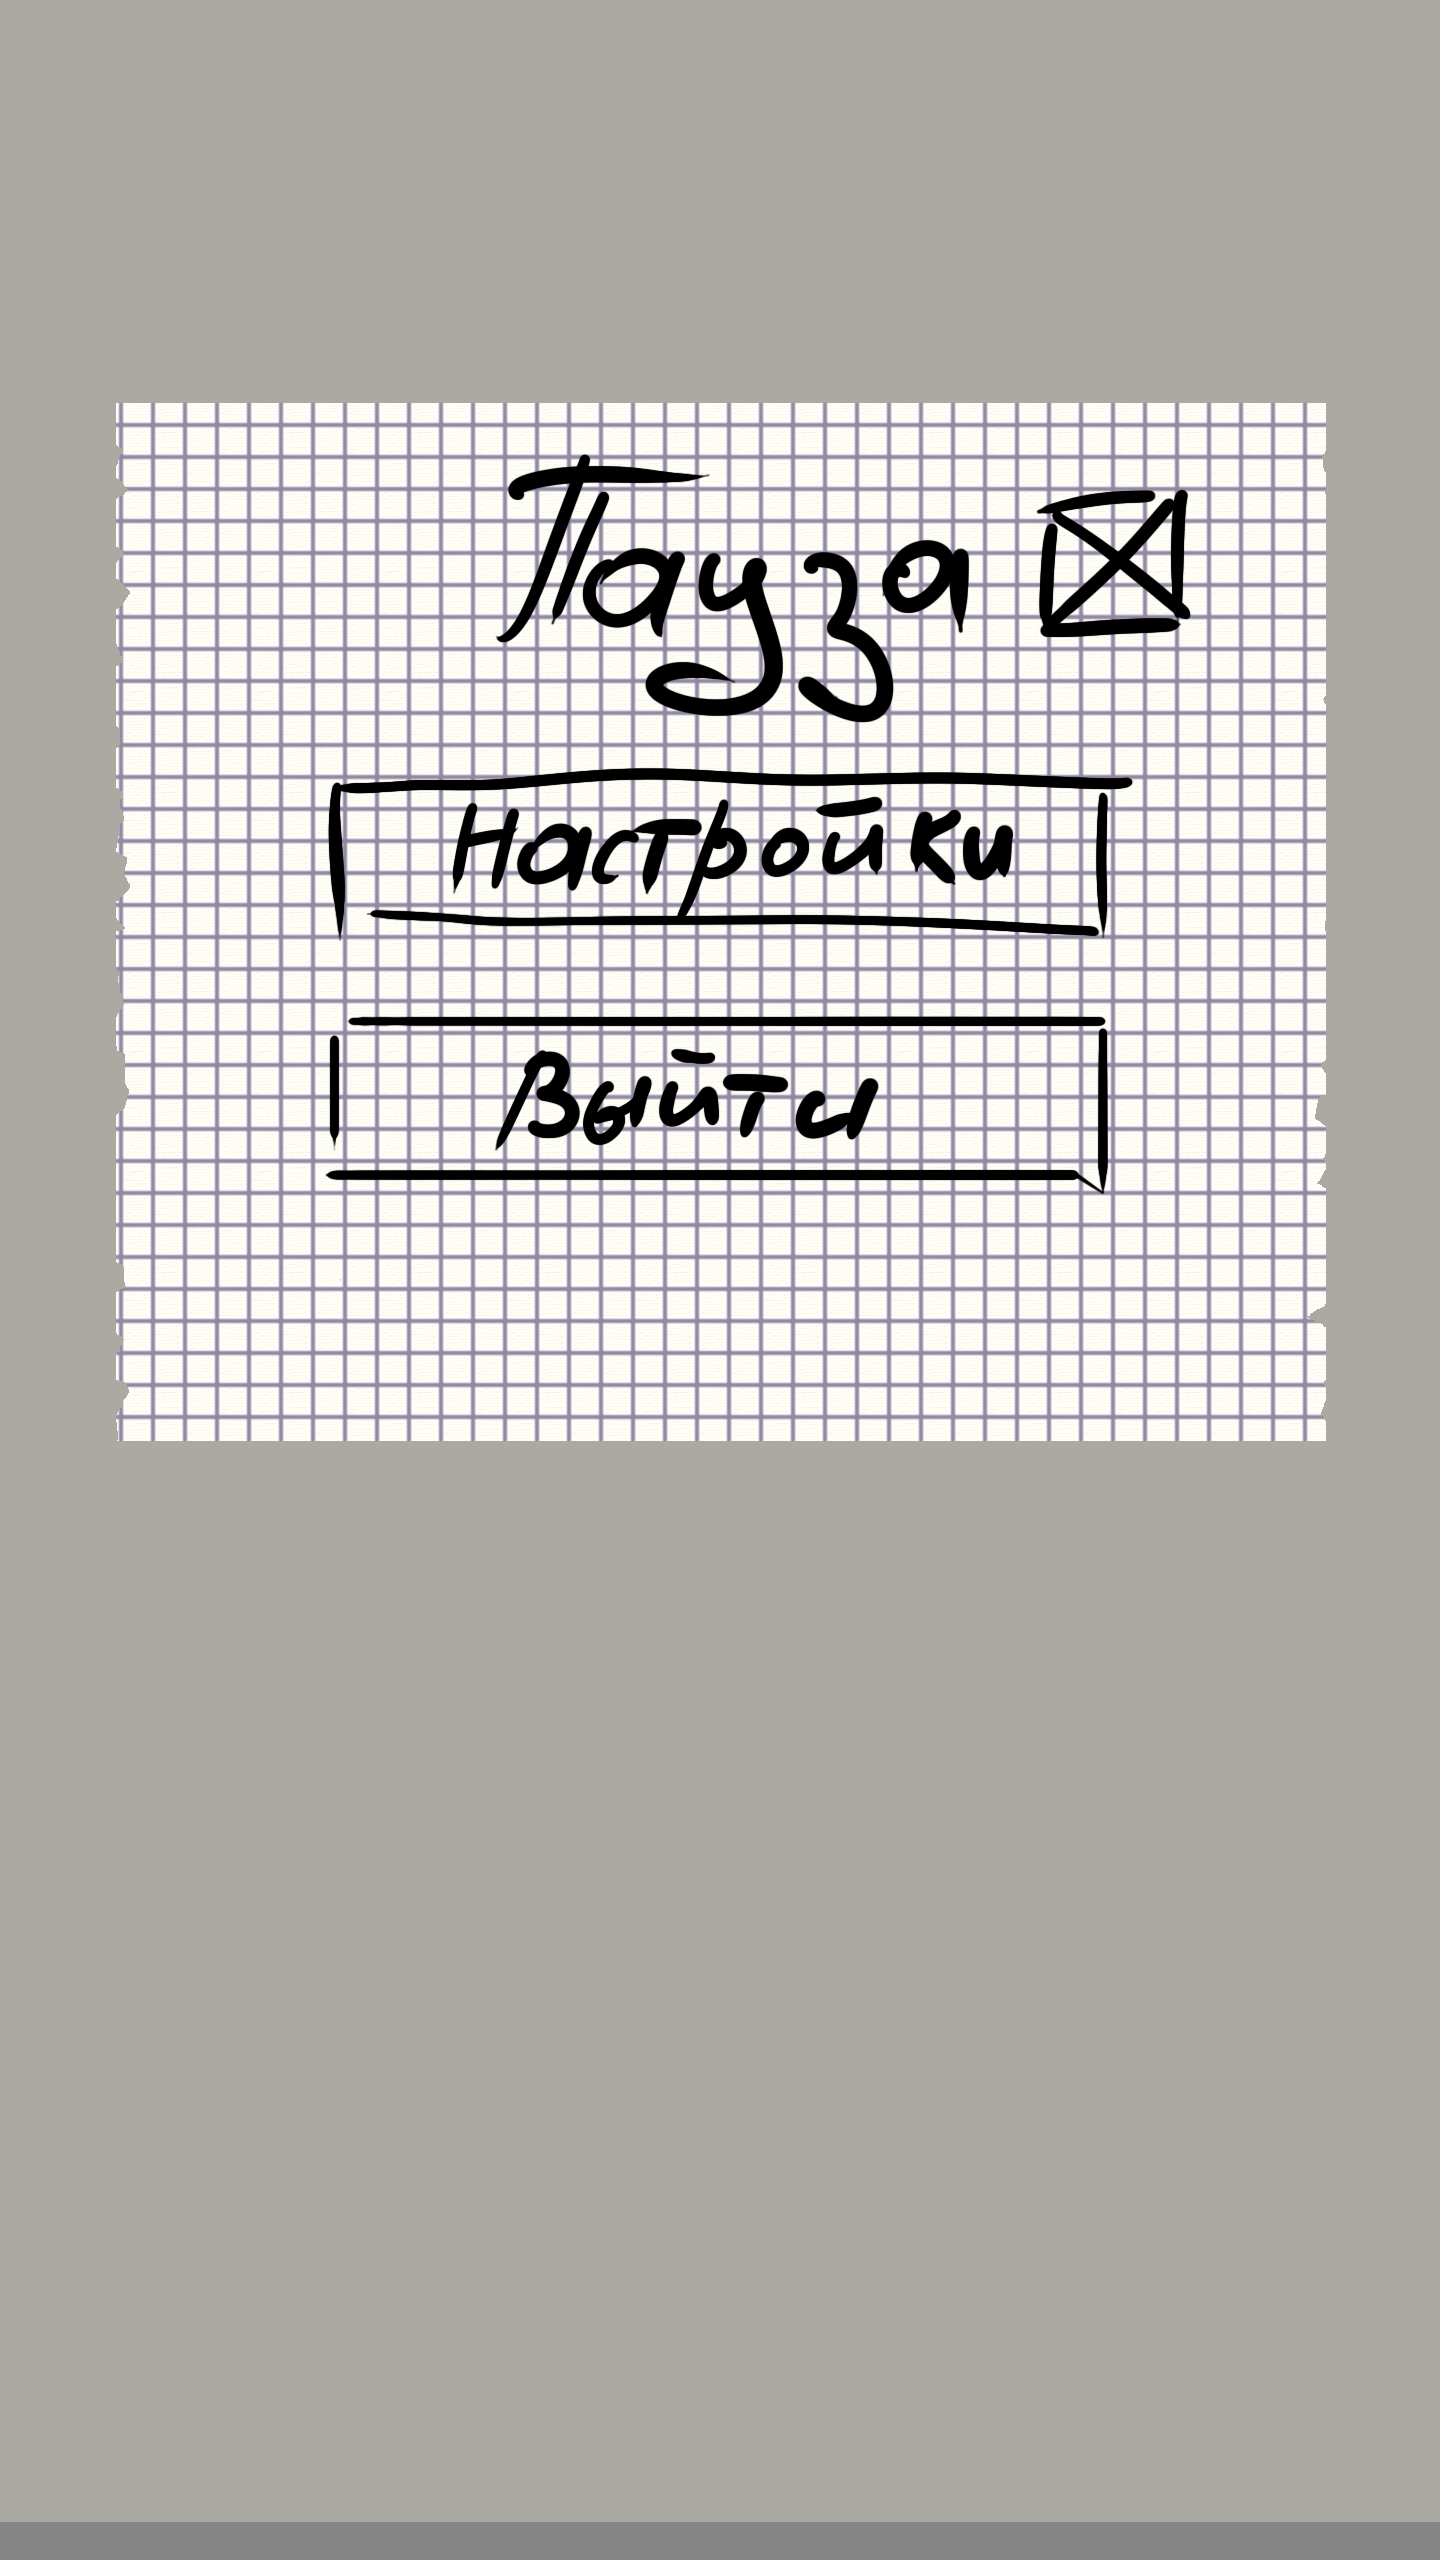 Пауза
Настройки
Выйти